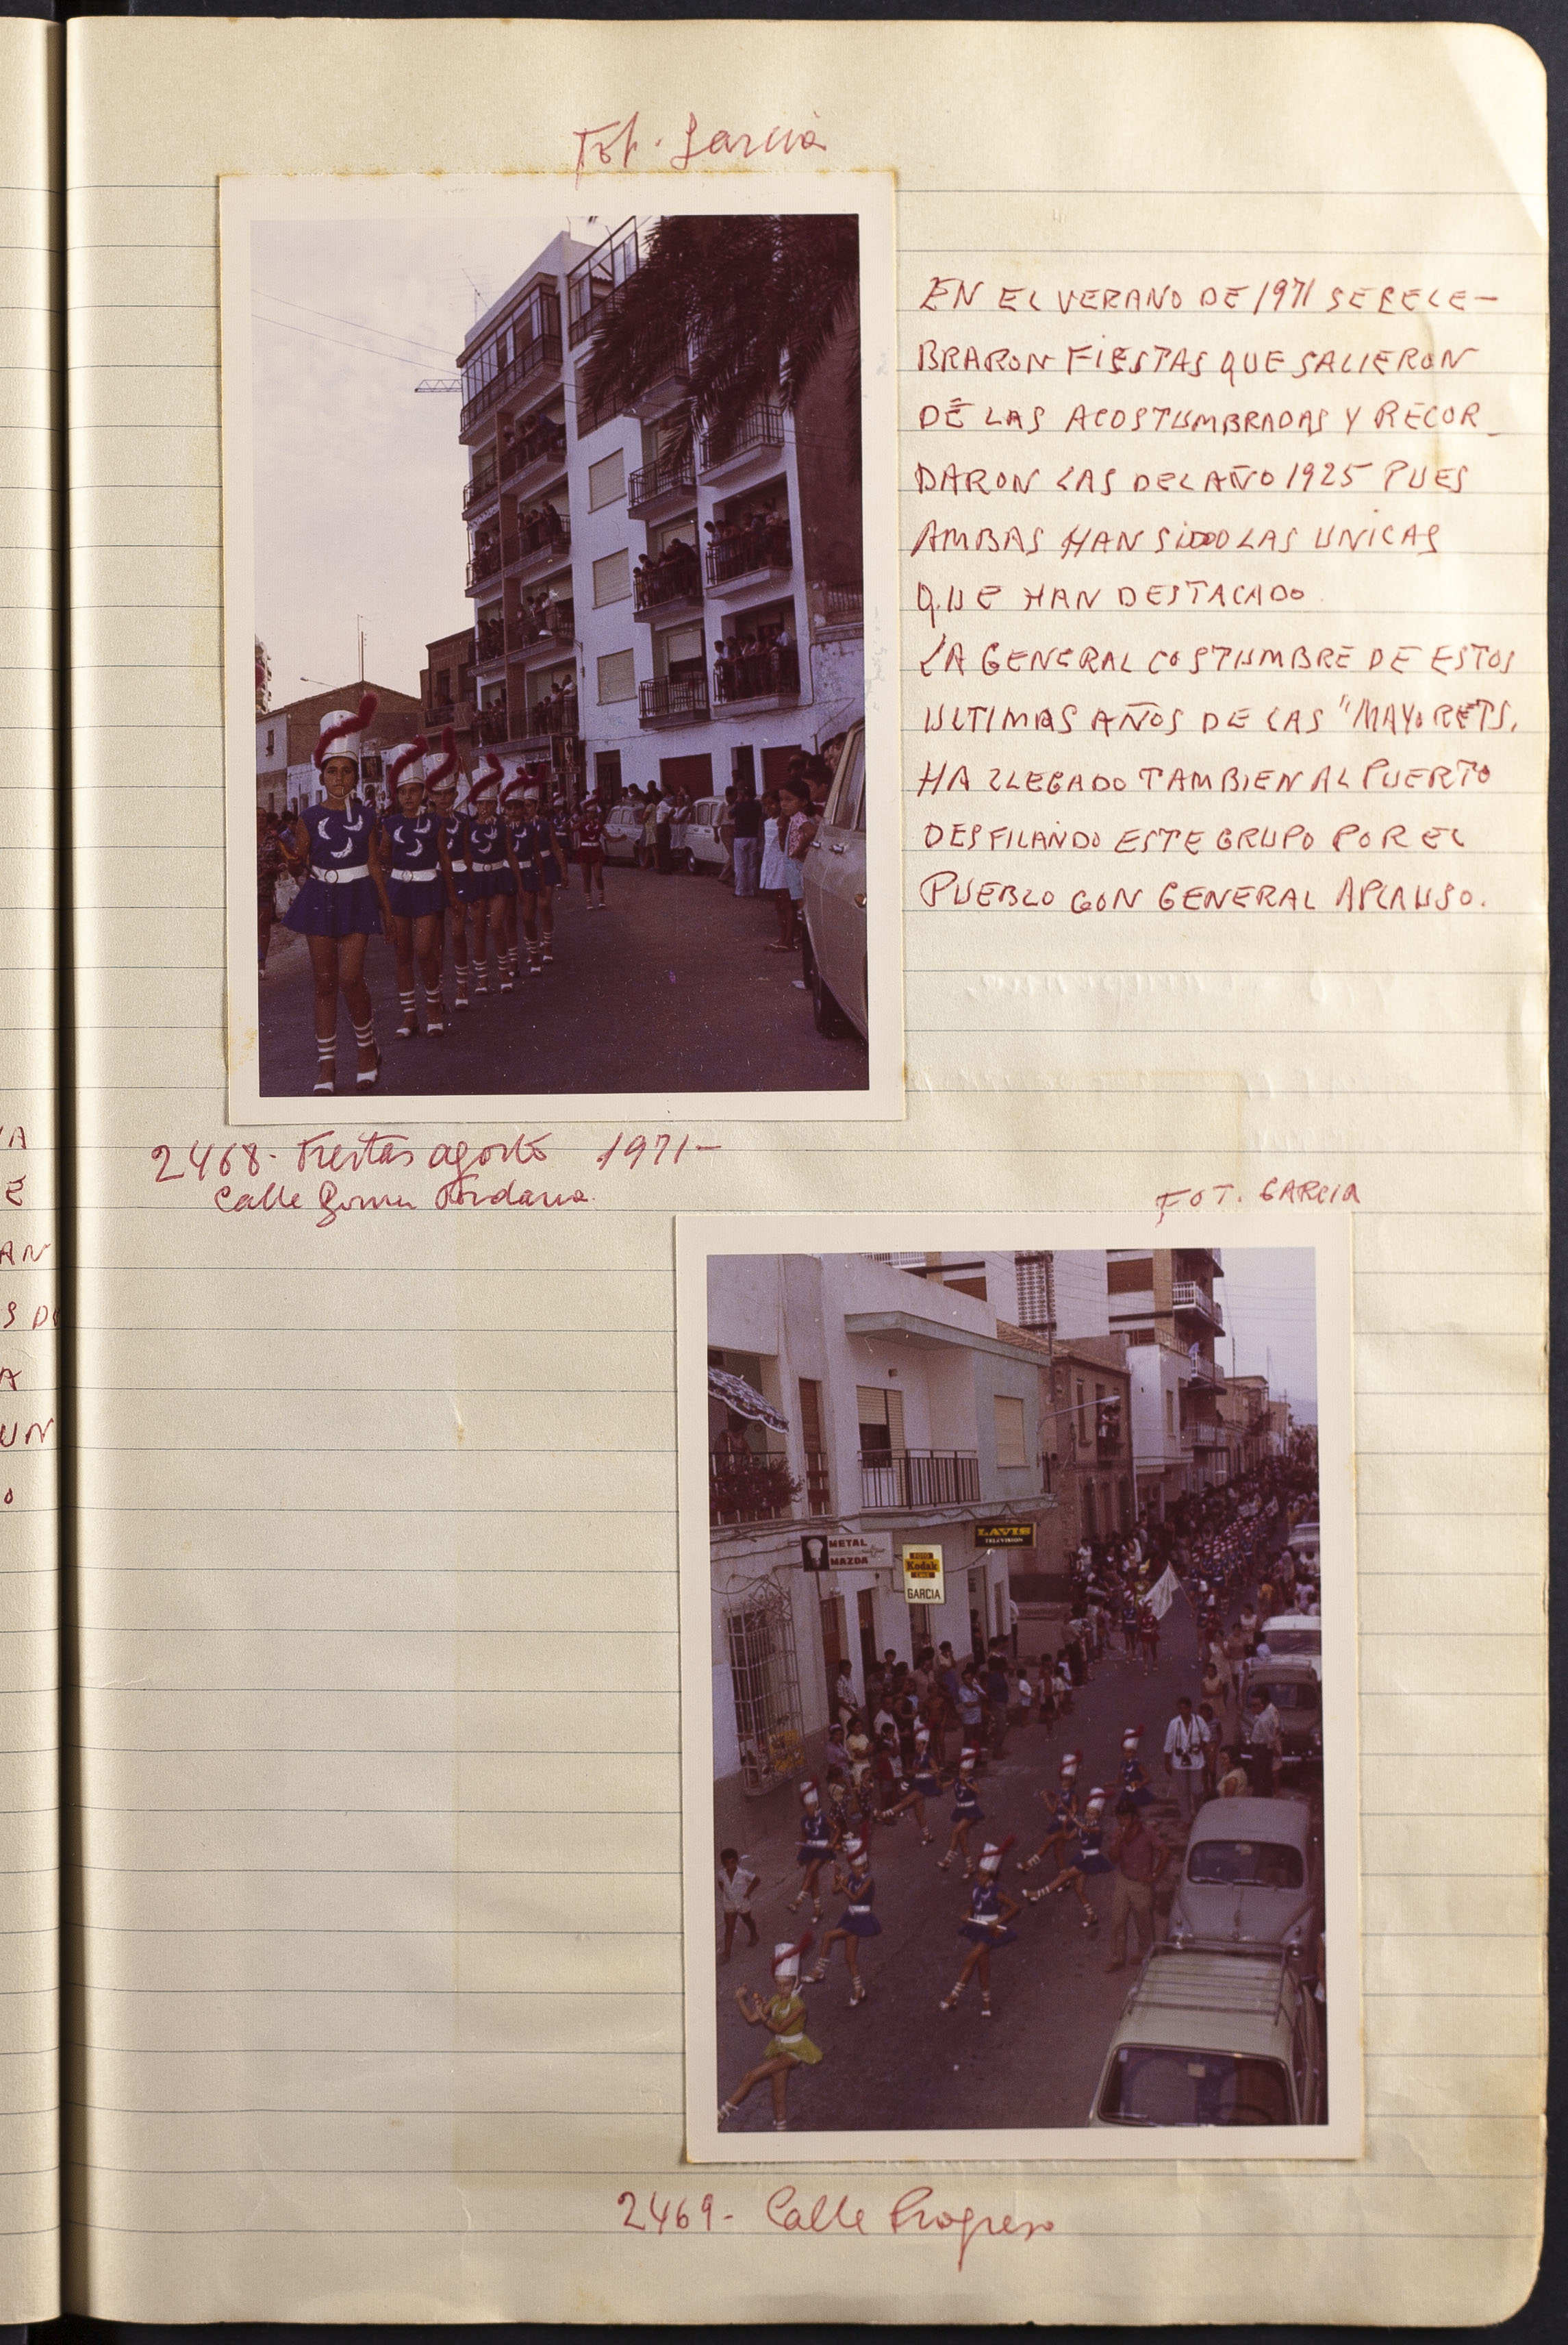 Fot. García
EN EL VERANO DE 1971 SE CELE-
BRARON FIESTAS QUE SALIERON
DE LAS ACOSTUMBRADAS Y RECOR-
DARON LAS DEL AÑO 1925 PUES
AMBAS HAN SIDO LAS UNICAS
QUE HAN DESTACADO.
LA GENERAL COSTUMBRE DE ESTOS
ULTIMOS AÑOS DE LAS "MAYORETS,
HA LLEGADO TAMBIEN AL PUERTO
DESFILANDO ESTE GRUPO POR EL
PUEBLO CON GENERAL APLAUSO.
2468- Fiestas agosto 1971-
Calle Gomez Jordana.
FOT. GARCIA
METAL
MAZDA
Kodak
GARCIA
LAVIS
TELEVISION
2469- Calle Progreso
IA
E
AN
S DE
A
UN
O